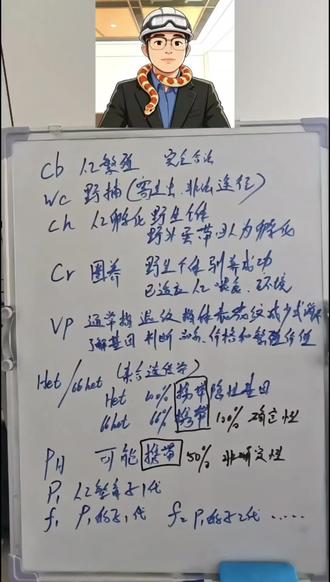 Cb 人工繁殖 完全合法
Wc 野捕(寄生虫 非法途径)
Ch 人工孵化 野生个体
野外蛋带回人为孵化
Cr 圈养 野生个体驯养成功
已适应人工喂食、环境
VP 通常指退纹 整体表现纹减少或消失
了解基因 判断 价格和繁殖价值
Het/66het (杂合遗传)
Het 100% 携带隐性基因
66het 66% 携带 100% 确定性
PH 可能携带 50% 非确定性
P1 人工繁育子1代
f1 P1的子1代 f2 P1的子2代 ......